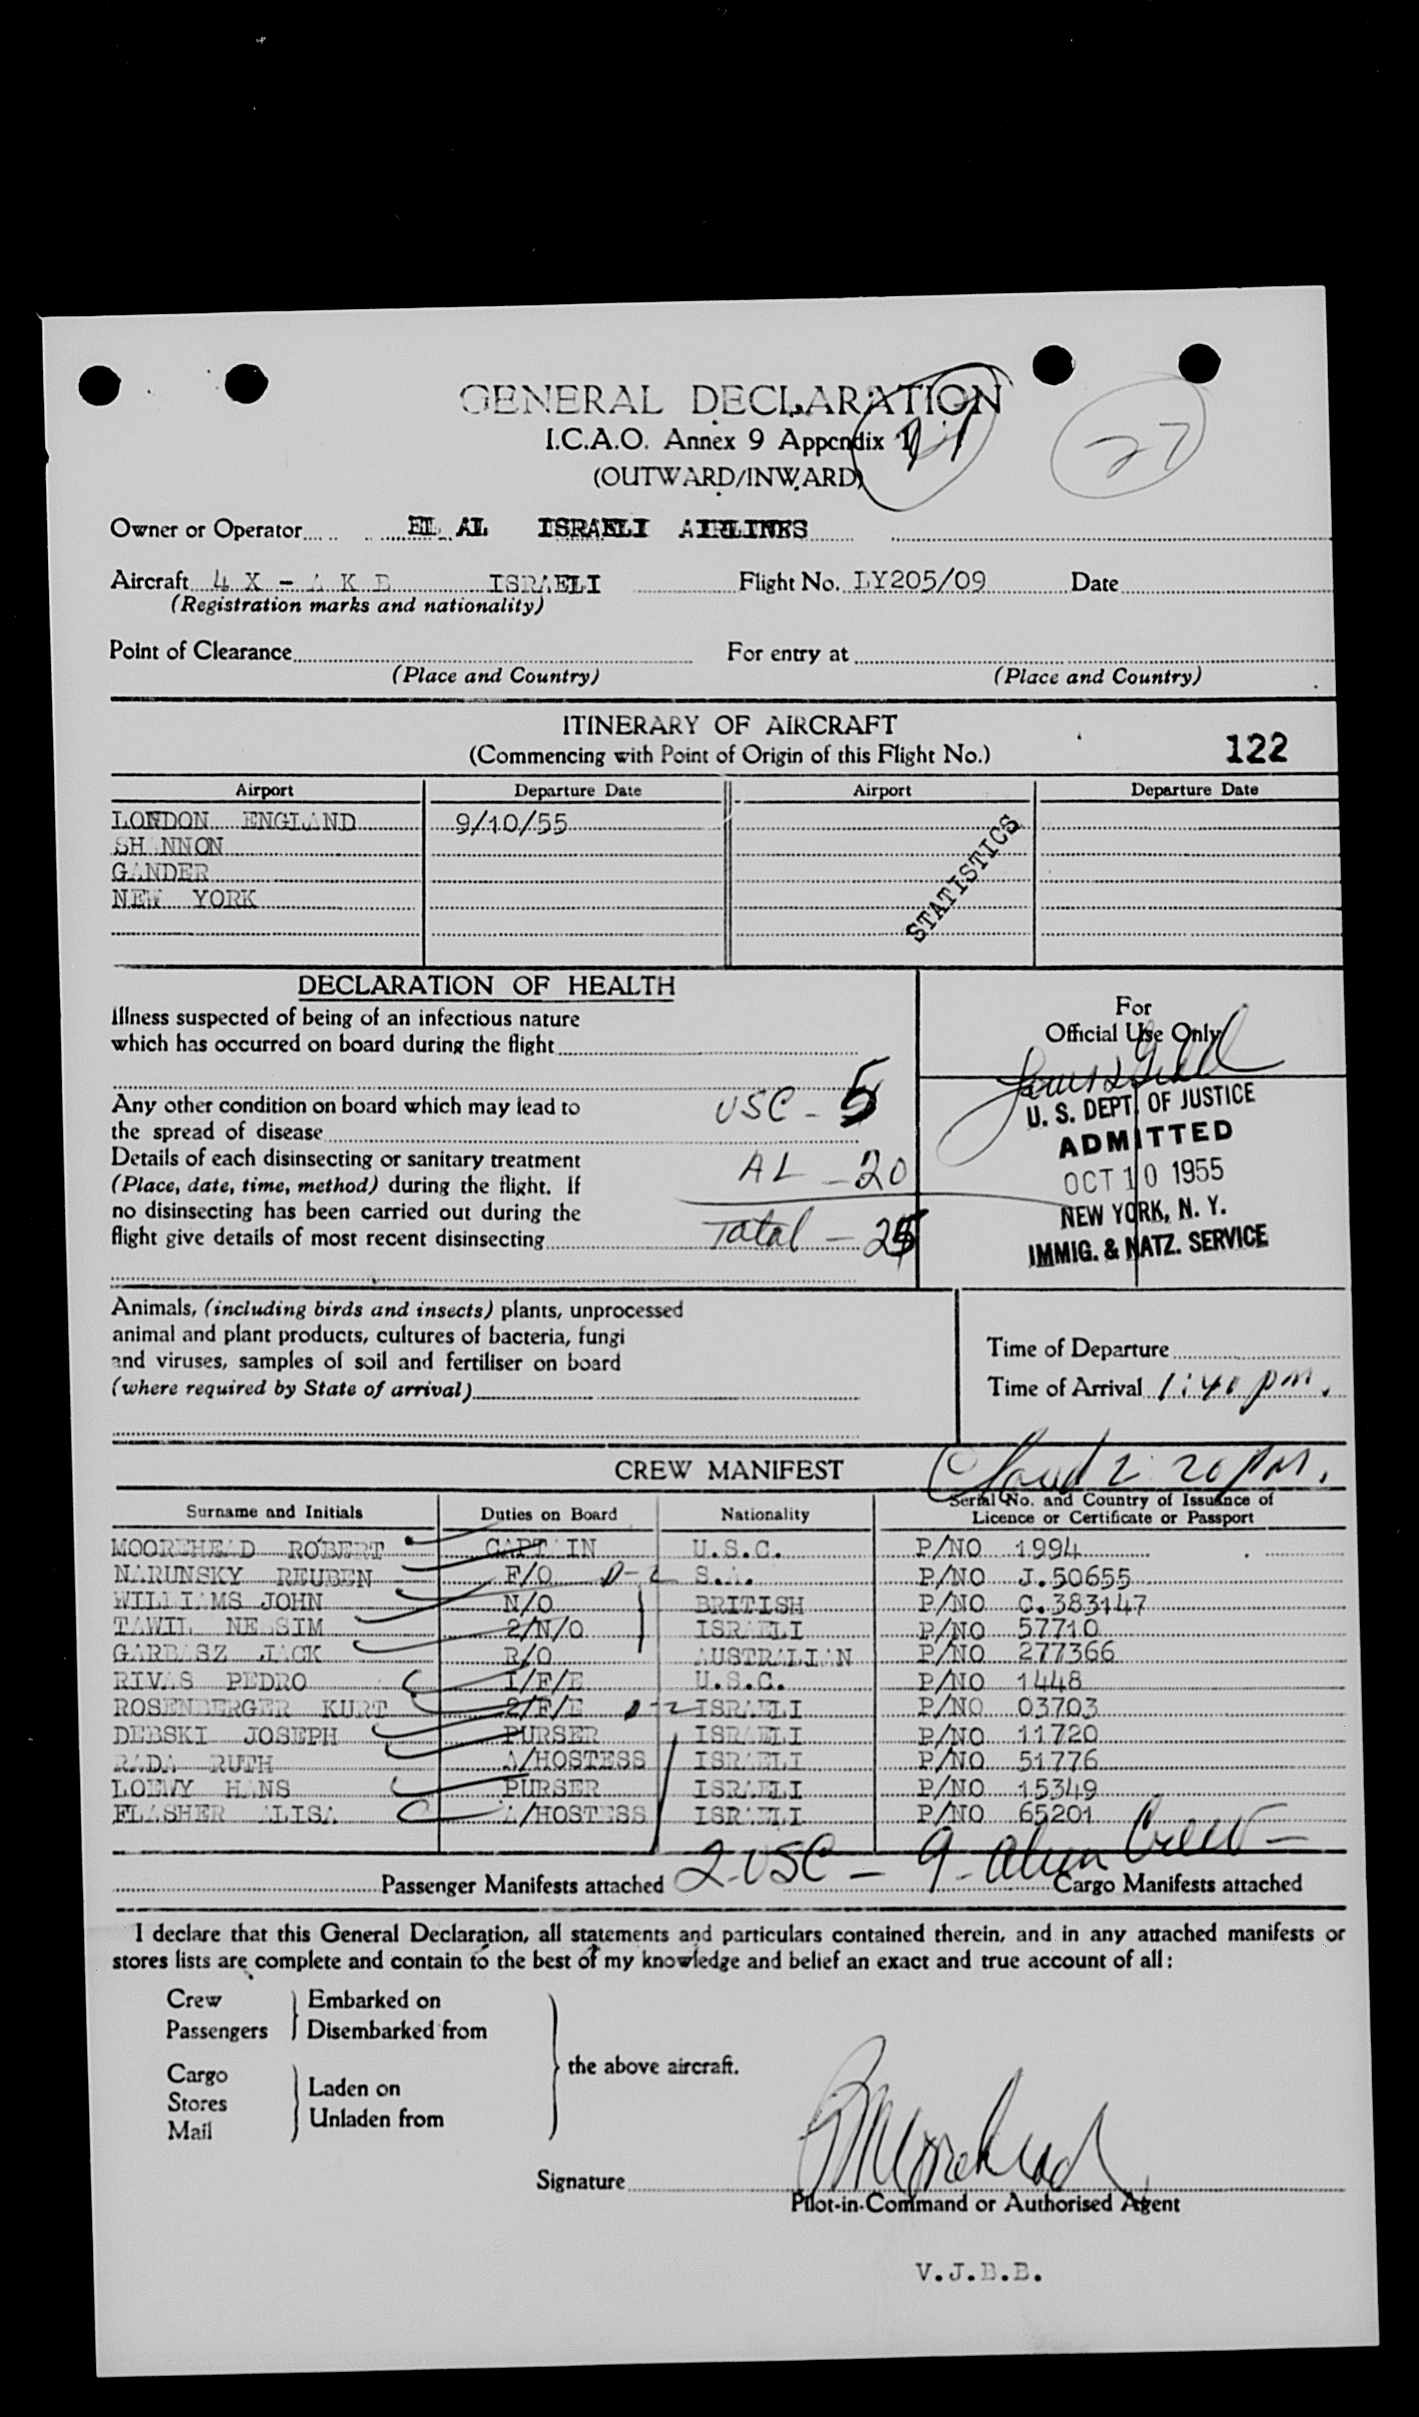 GENERAL DECLARATION
I.C.A.O. Annex 9 Appendix 1
(OUTWARD/INWARD)
27
Owner or Operator EL AL ISRAELI AIRLINES
Aircraft 4X-AKB ISRAELI Flight No. LY205/09 Date
(Registration marks and nationality)
Point of Clearance For entry at
(Place and Country) (Place and Country)
ITINERARY OF AIRCRAFT
(Commencing with Point of Origin of this Flight No.) 122
Airport Departure Date Airport Departure Date
LONDON ENGLAND 9/10/55
SHANNON
GANDER
NEW YORK
STATISTICS
DECLARATION OF HEALTH
Illness suspected of being of an infectious nature
which has occurred on board during the flight
Any other condition on board which may lead to
the spread of disease
Details of each disinsecting or sanitary treatment
(Place, date, time, method) during the flight. If
no disinsecting has been carried out during the
flight give details of most recent disinsecting
USC - 5
AL - 20
Total - 25
For
Official Use Only
U. S. DEPT. OF JUSTICE
ADMITTED
OCT 10 1955
NEW YORK, N. Y.
IMMIG. & NATZ. SERVICE
Animals, (including birds and insects) plants, unprocessed
animal and plant products, cultures of bacteria, fungi
and viruses, samples of soil and fertiliser on board
(where required by State of arrival)
Time of Departure
Time of Arrival 1:40 pm.
CREW MANIFEST 2:20 PM.
Surname and Initials Duties on Board Nationality Serial No. and Country of Issuance of Licence or Certificate or Passport
MOOREHEAD ROBERT CAPTAIN U.S.C. P/NO 1994
NARUNSKY REUBEN F/O D-2 S.A. P/NO J.50655
WILLIAMS JOHN N/O BRITISH P/NO C.383147
TAWIL NESSIM 2/N/O ISRAELI P/NO 57710
GARBASZ JACK R/O AUSTRALIAN P/NO 277366
RIVAS PEDRO I/F/E U.S.C. P/NO 1448
ROSENBERGER KURT 2/F/E D-2 ISRAELI P/NO 03703
DEBSKI JOSEPH PURSER ISRAELI P/NO 11720
RADA RUTH A/HOSTESS ISRAELI P/NO 51776
LOEWY HANS PURSER ISRAELI P/NO 15349
FLASHER ALISA A/HOSTESS ISRAELI P/NO 65201
2-USC - 9-alien Crew -
Passenger Manifests attached Cargo Manifests attached
I declare that this General Declaration, all statements and particulars contained therein, and in any attached manifests or
stores lists are complete and contain to the best of my knowledge and belief an exact and true account of all:
Crew Embarked on
Passengers Disembarked from
the above aircraft.
Cargo
Stores Laden on
Mail Unladen from
Signature RMoorehead
Pilot-in-Command or Authorised Agent
V.J.B.B.